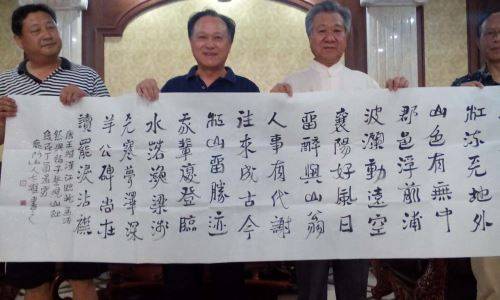 江流天地外
山色有無中
郡邑浮前浦
波瀾動遠空
襄陽好風日
留醉與山翁
人事有代謝
往來成古今
江山留勝迹
我輩復登臨
水落漁梁淺
天寒夢澤深
羊公碑尚在
讀罷淚沾襟
唐王維漢江臨眺孟浩
然與諸子登峴山